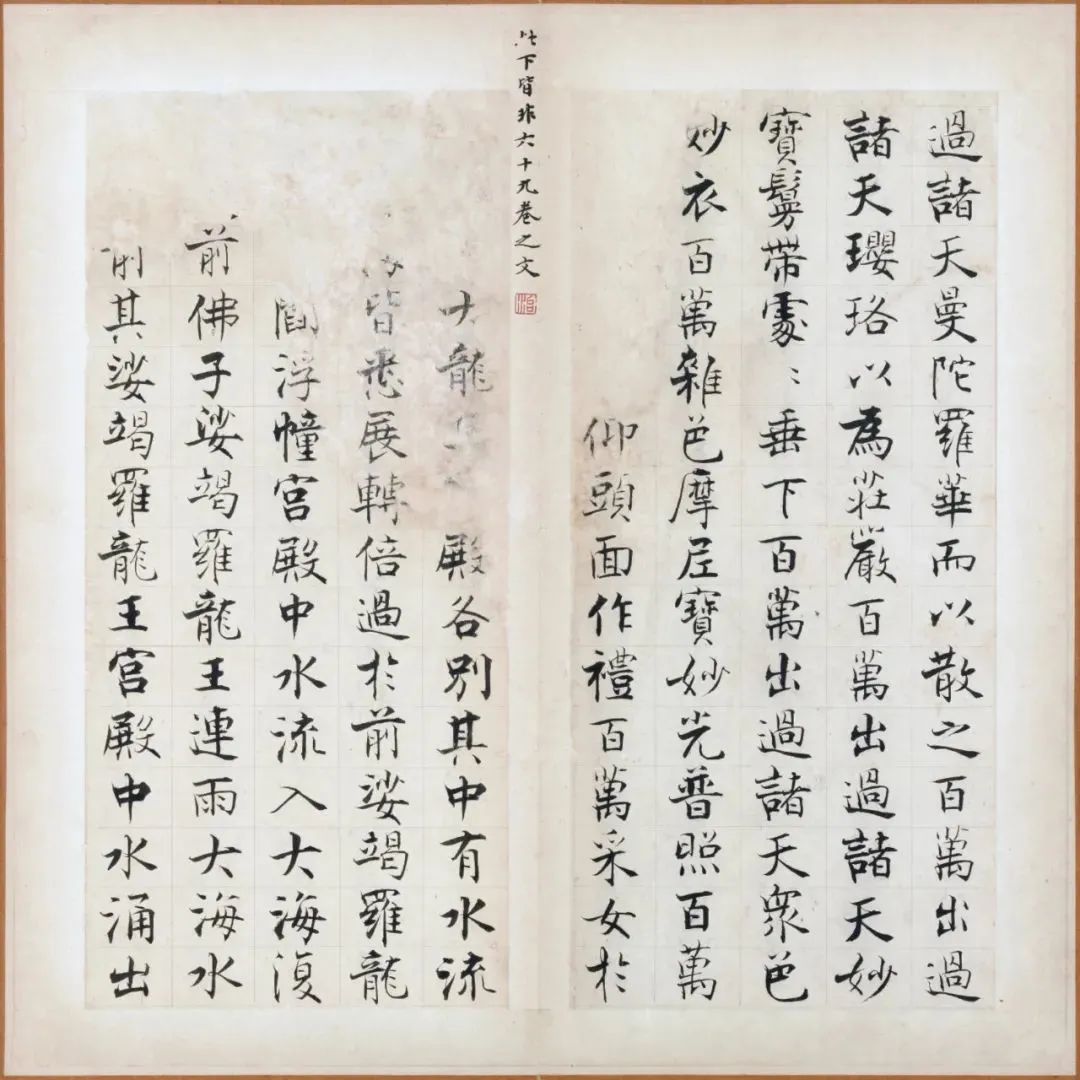 過諸天曼陀羅華而以散之百萬出過
諸天瓔珞以為莊嚴百萬出過諸天妙
寶鬘帶處〻垂下百萬出過諸天眾色
妙衣百萬雜色摩尼寶妙光普照百萬
仰頭面作禮百萬采女於
此下皆非六十九卷之文
大龍 殿各別其中有水流
皆悉展轉倍過於前娑竭羅龍
閻浮幢宮殿中水流入大海復
前佛子娑竭羅龍王連雨大海水
前其娑竭羅龍王宮殿中水涌出